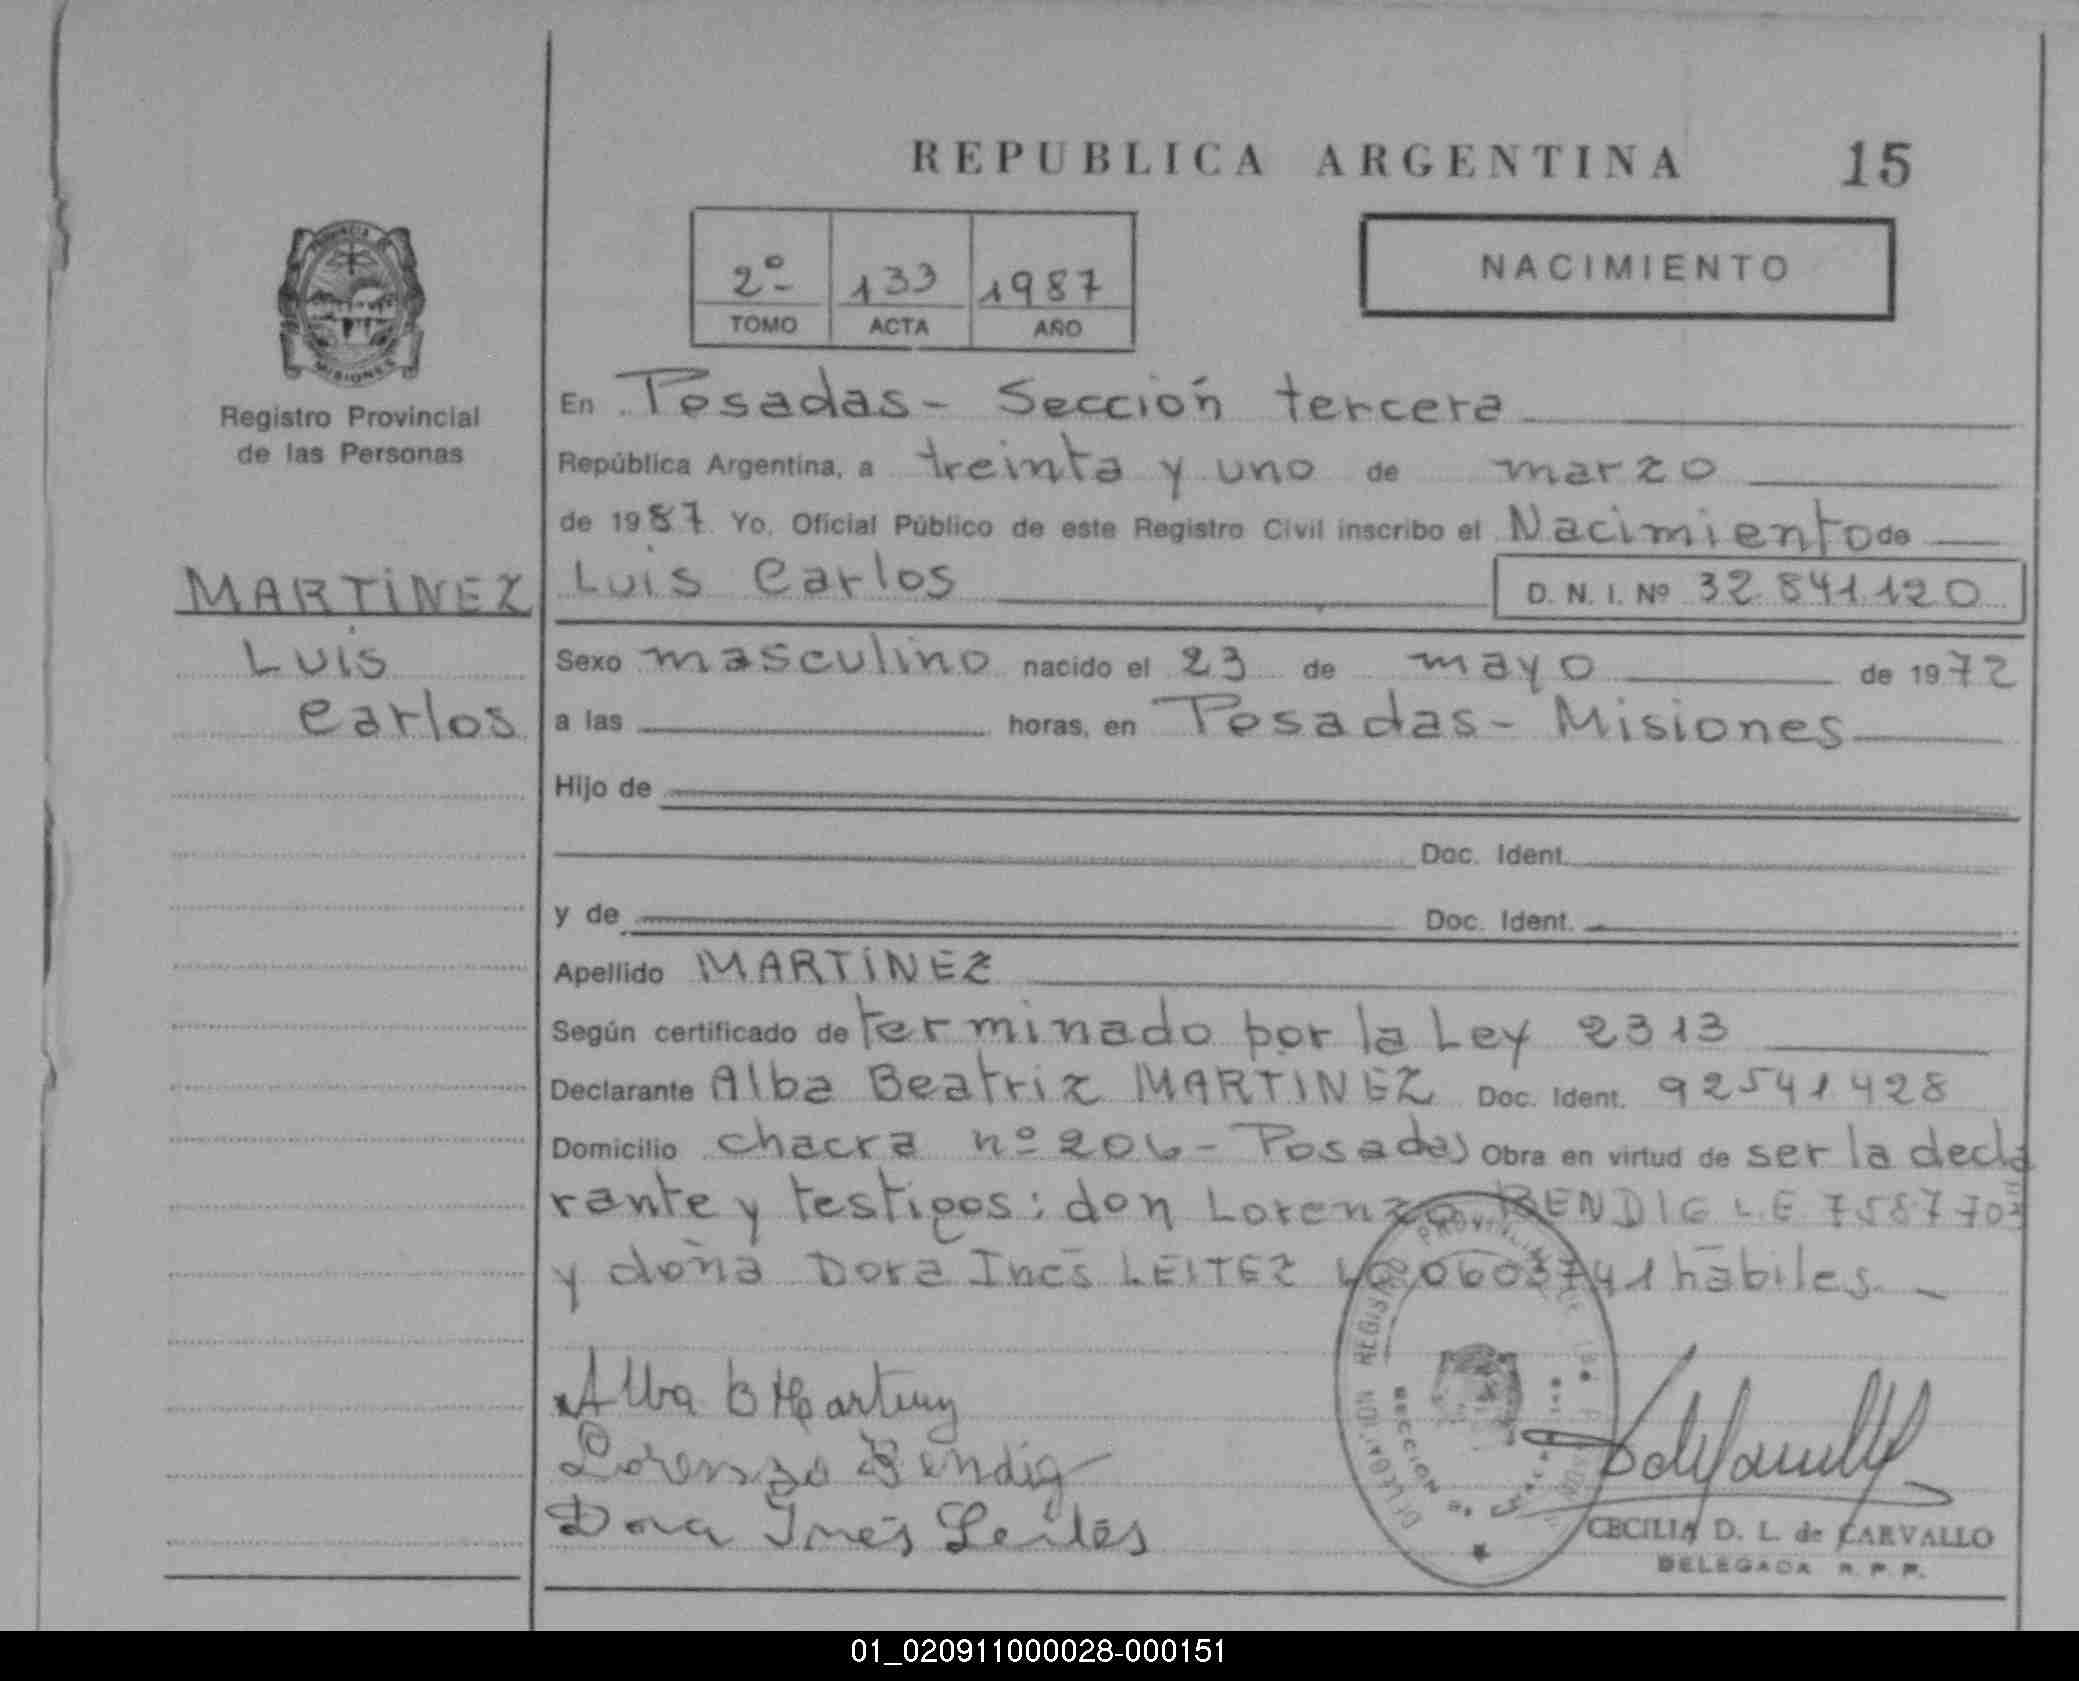 REPUBLICA ARGENTINA 15
PROVINCIA
MISIONES
Registro Provincial
de las Personas
2º 133 1987
TOMO ACTA AÑO
NACIMIENTO
En Posadas - Sección tercera
República Argentina, a treinta y uno de marzo
de 1987. Yo, Oficial Público de este Registro Civil inscribo el Nacimiento de
MARTINEZ
Luis
Carlos
Luis Carlos D. N. I. Nº 32.841.120
Sexo masculino nacido el 23 de mayo de 1972
a las horas, en Posadas - Misiones
Hijo de
Doc. Ident.
y de Doc. Ident.
Apellido MARTINEZ
Según certificado de terminado por la Ley 2313
Declarante Alba Beatriz MARTINEZ Doc. Ident. 92541428
Domicilio chacra nº 206 - Posadas Obra en virtud de ser la decla
rante y testigos: don Lorenzo BENDIG L.E 7587703
y doña Dora Inés LEITEZ 0603741 hábiles.
Alba B Martinez
Lorenzo Bendig
Dora Inés Leites
DELEGACION REGISTRO PROVINCIAL DE LAS
SECCION
CECILIA D. L. de CARVALLO
DELEGADA R. P. P.
01_020911000028-000151